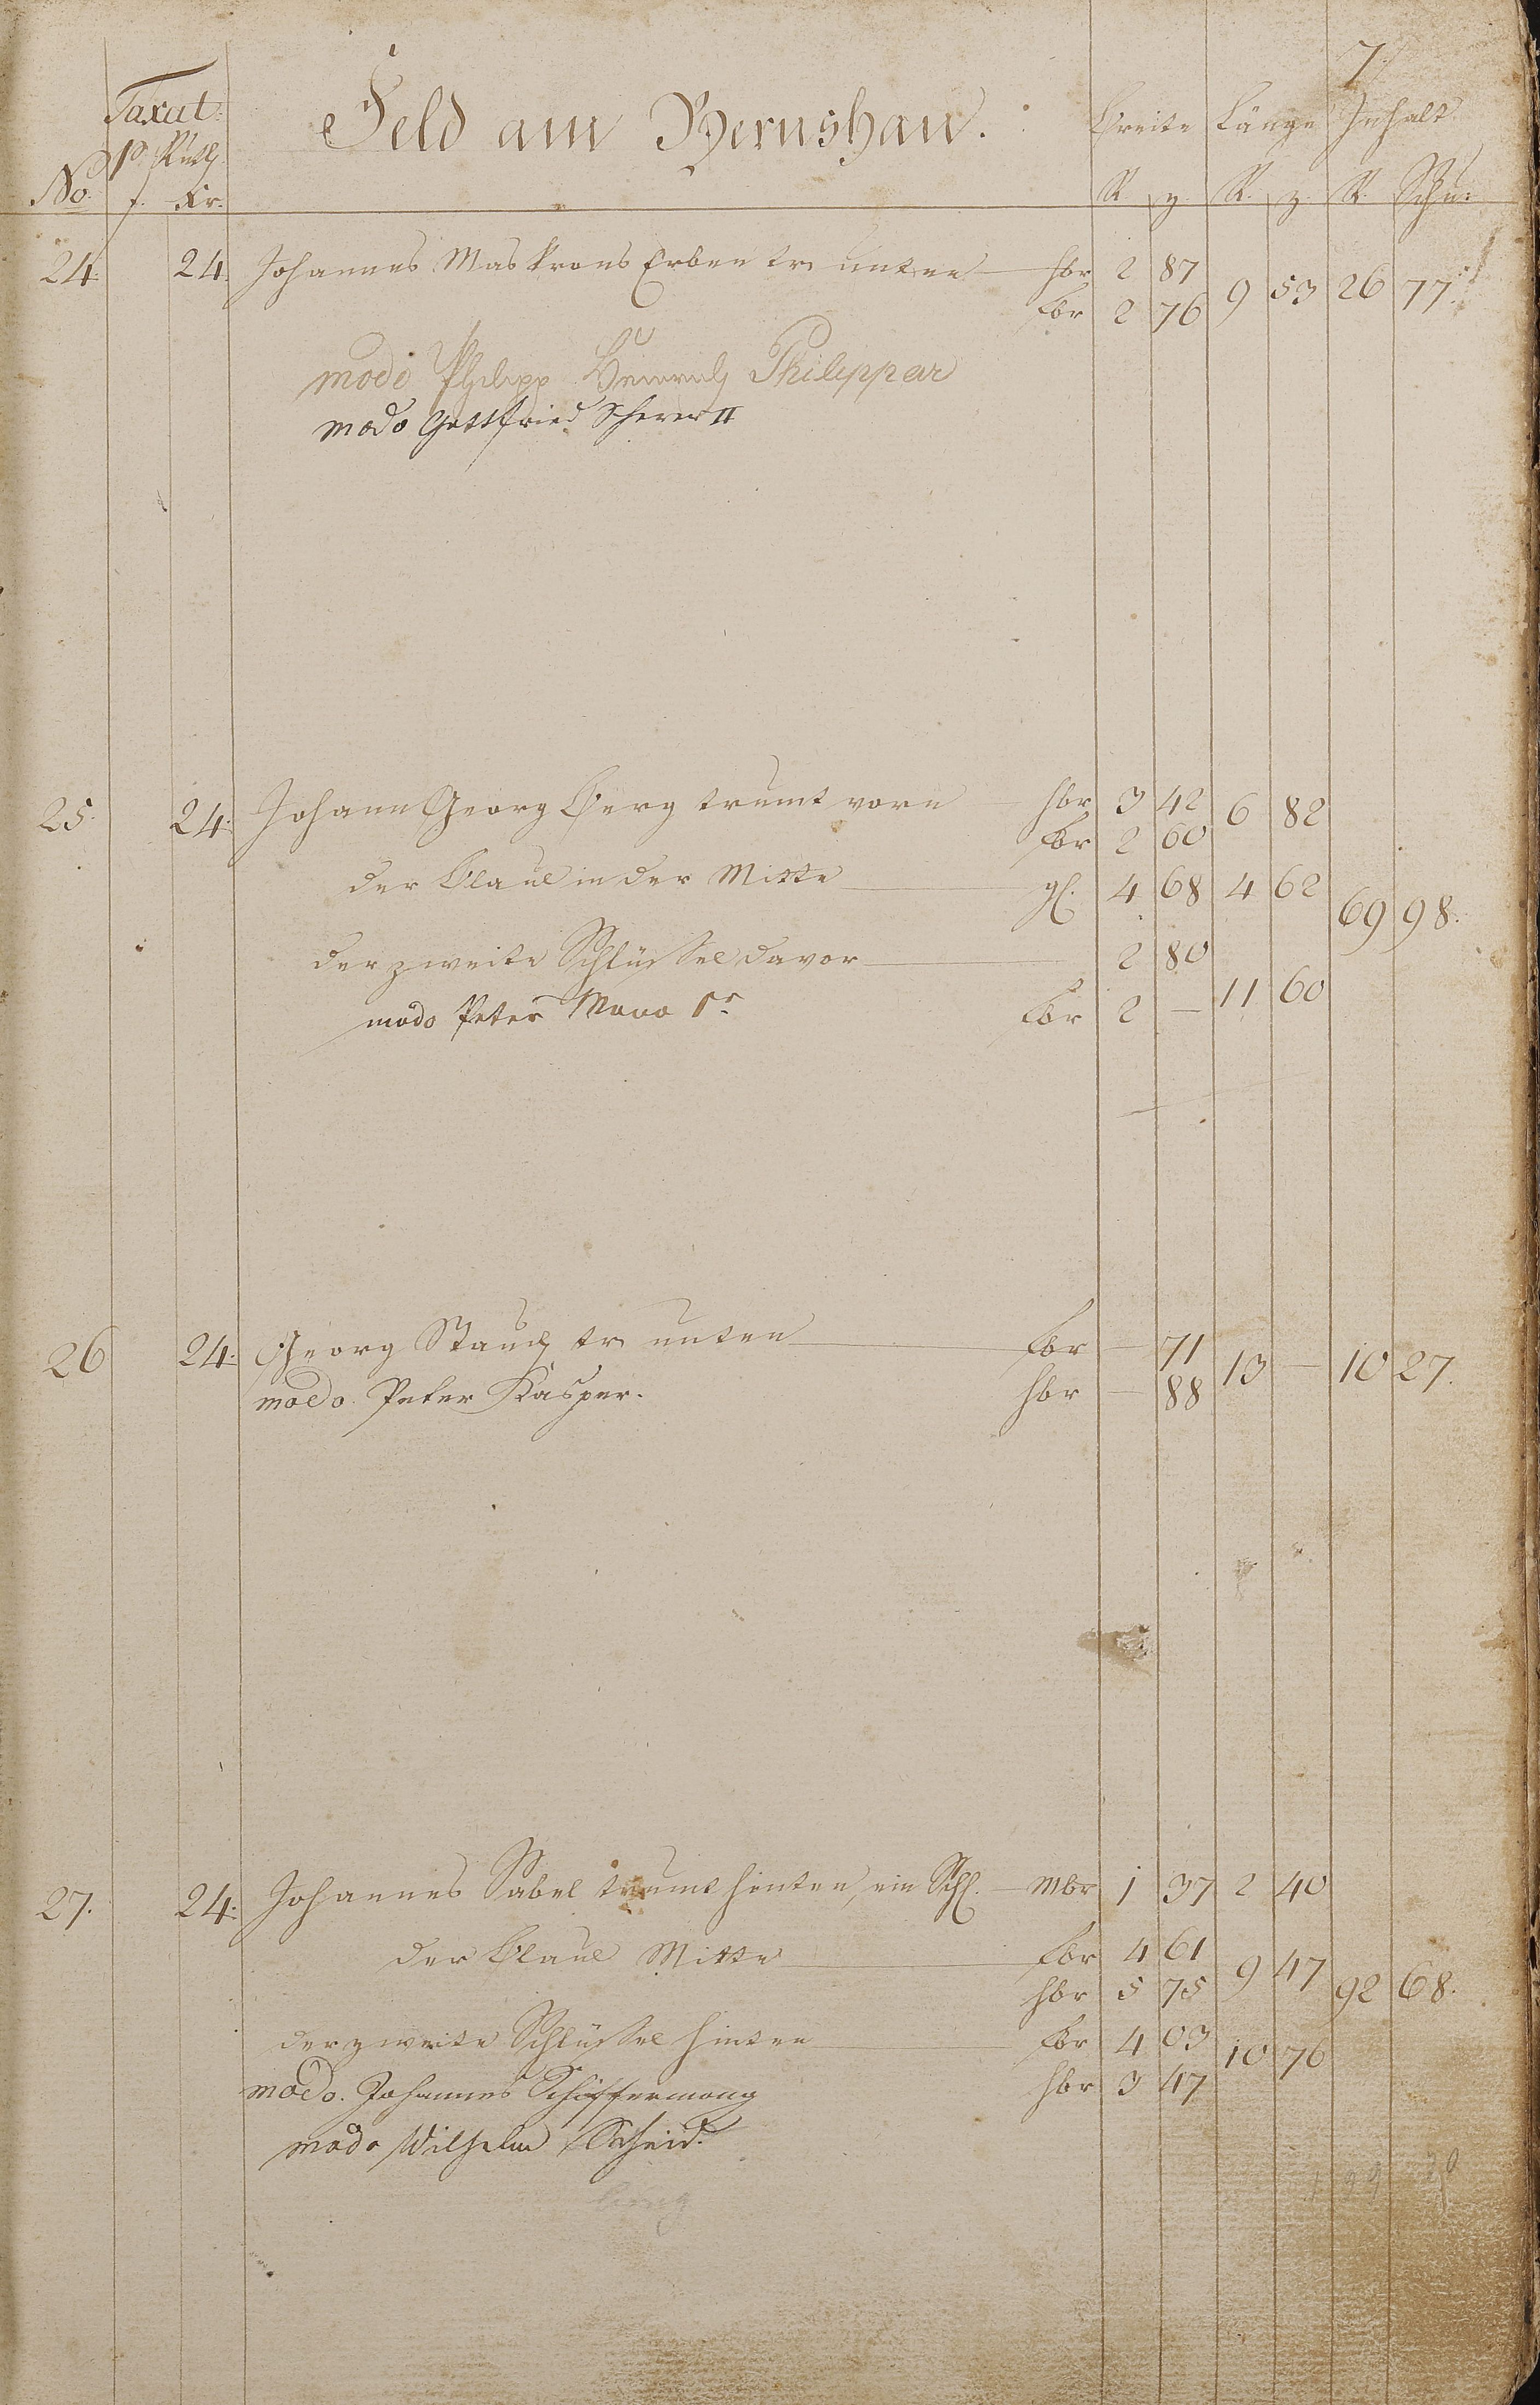 7.
Taxat:
Feld am Bernshau.
Breite Länge Inhalt
p Ruth
No. f. Kr. R. z. R. z. R. Schu:
24. 24. Johannes Maskrons Erben tr. unten hbr 2 87 9 53 26 77.
fbr 2 76
modo Philipp Heinrich Philippar
modo Gottfried Scherer II
25. 24. Johann Georg Berg trumt vorn hbr 3 42 6 82
fbr 2 60
der Blaul in der Mitte gl. 4 68 4 62 69 98.
der zweite Schlüssel davor 2 80
modo Peter fbr 2 — 11 60
26 24. Georg Stauch tr. unten fbr — 71 13 — 10 27.
modo Peter Kasper. hbr — 88
27. 24. Johannes Sabel trumt hinten, ein Schl. Mbr 1 37 2 40
der Blaul Mitte fbr 4 61 9 47 92 68.
hbr 5 75
der zweite Schlüssel hinten fbr 4 03 10 76
modo. Johannes Schiffermang hbr 3 47
modo Wilhelm Scheid.